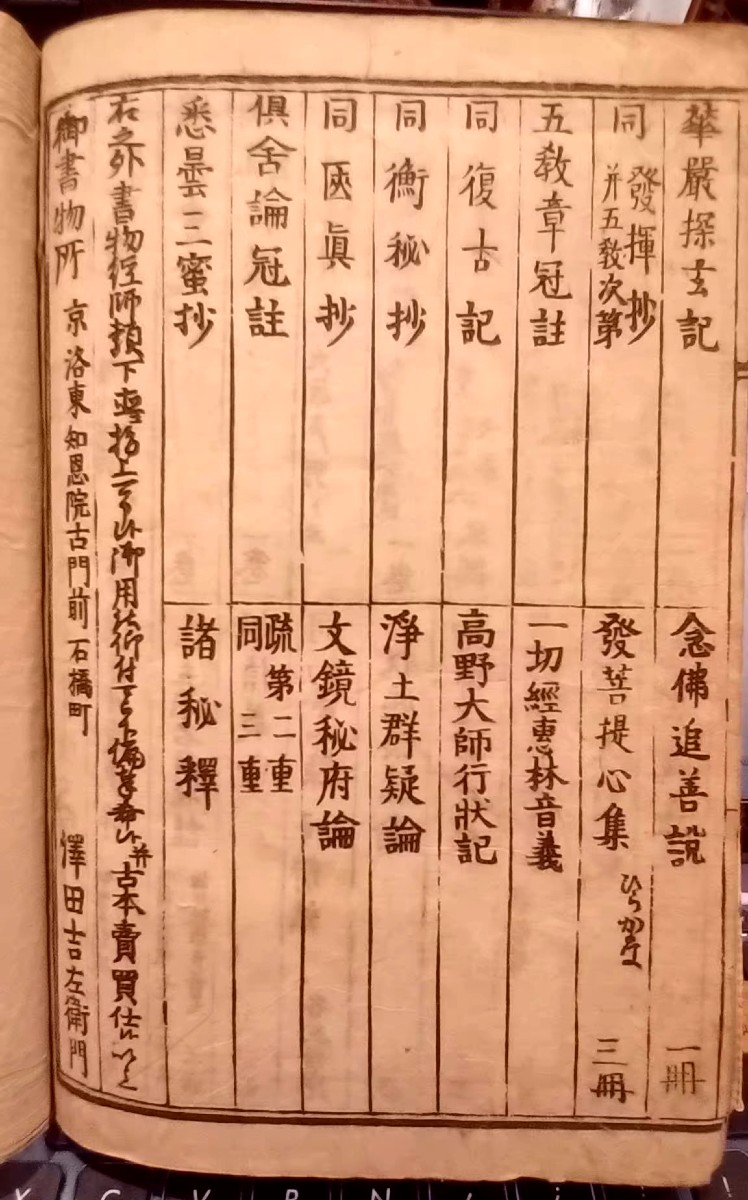 華嚴探玄記
同 發揮抄
并五敎次第
五敎章冠註
同復古記
同衡秘抄
同匧眞抄
俱舍論冠註
悉曇三蜜抄
念佛追善説 一冊
發菩提心集 ひらかな 三冊
一切經惠林音義
高野大師行状記
淨土群疑論
文鏡秘府論
疏第二重
同三重
諸秘釋
右之外書物經師類下直
御用 古本賣買仕
御書物所 京洛東知恩院古門前石橋町 澤田吉左衛門